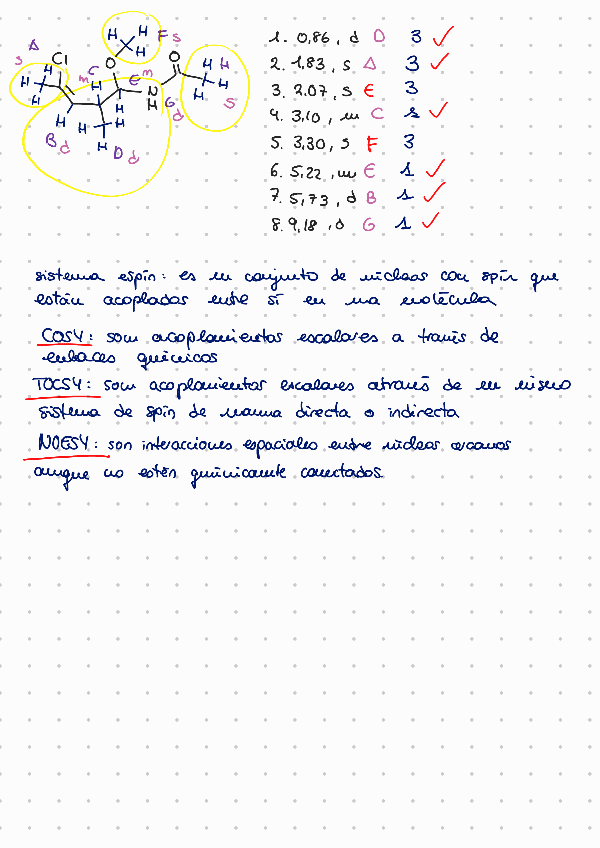 A
s
Cl
H
H
H
C
m
H
H
H
H
O
F s
E m
H
N
H
O
H H
H
H
S
G
d
H
H
H
H
B d
D d
1. 0,86, d D 3 ✓
2. 1,83, s A 3 ✓
3. 2.07, s E 3
4. 3,10, m C 1 ✓
5. 3,30, s F 3
6. 5,22, m E 1 ✓
7. 5,73, d B 1 ✓
8. 9,18, d G 1 ✓
sistema espín: es un conjunto de núcleos con spin que
están acoplados entre sí en una molécula
COSY: som acoplamientos escalares a través de
enlaces químicos
TOCSY: som acoplamientos escalares através de un mismo
sistema de spin de manna directa o indirecta
NOESY: son interacciones espaciales entre núcleos cercanos
aunque no estén químicamente conectados.